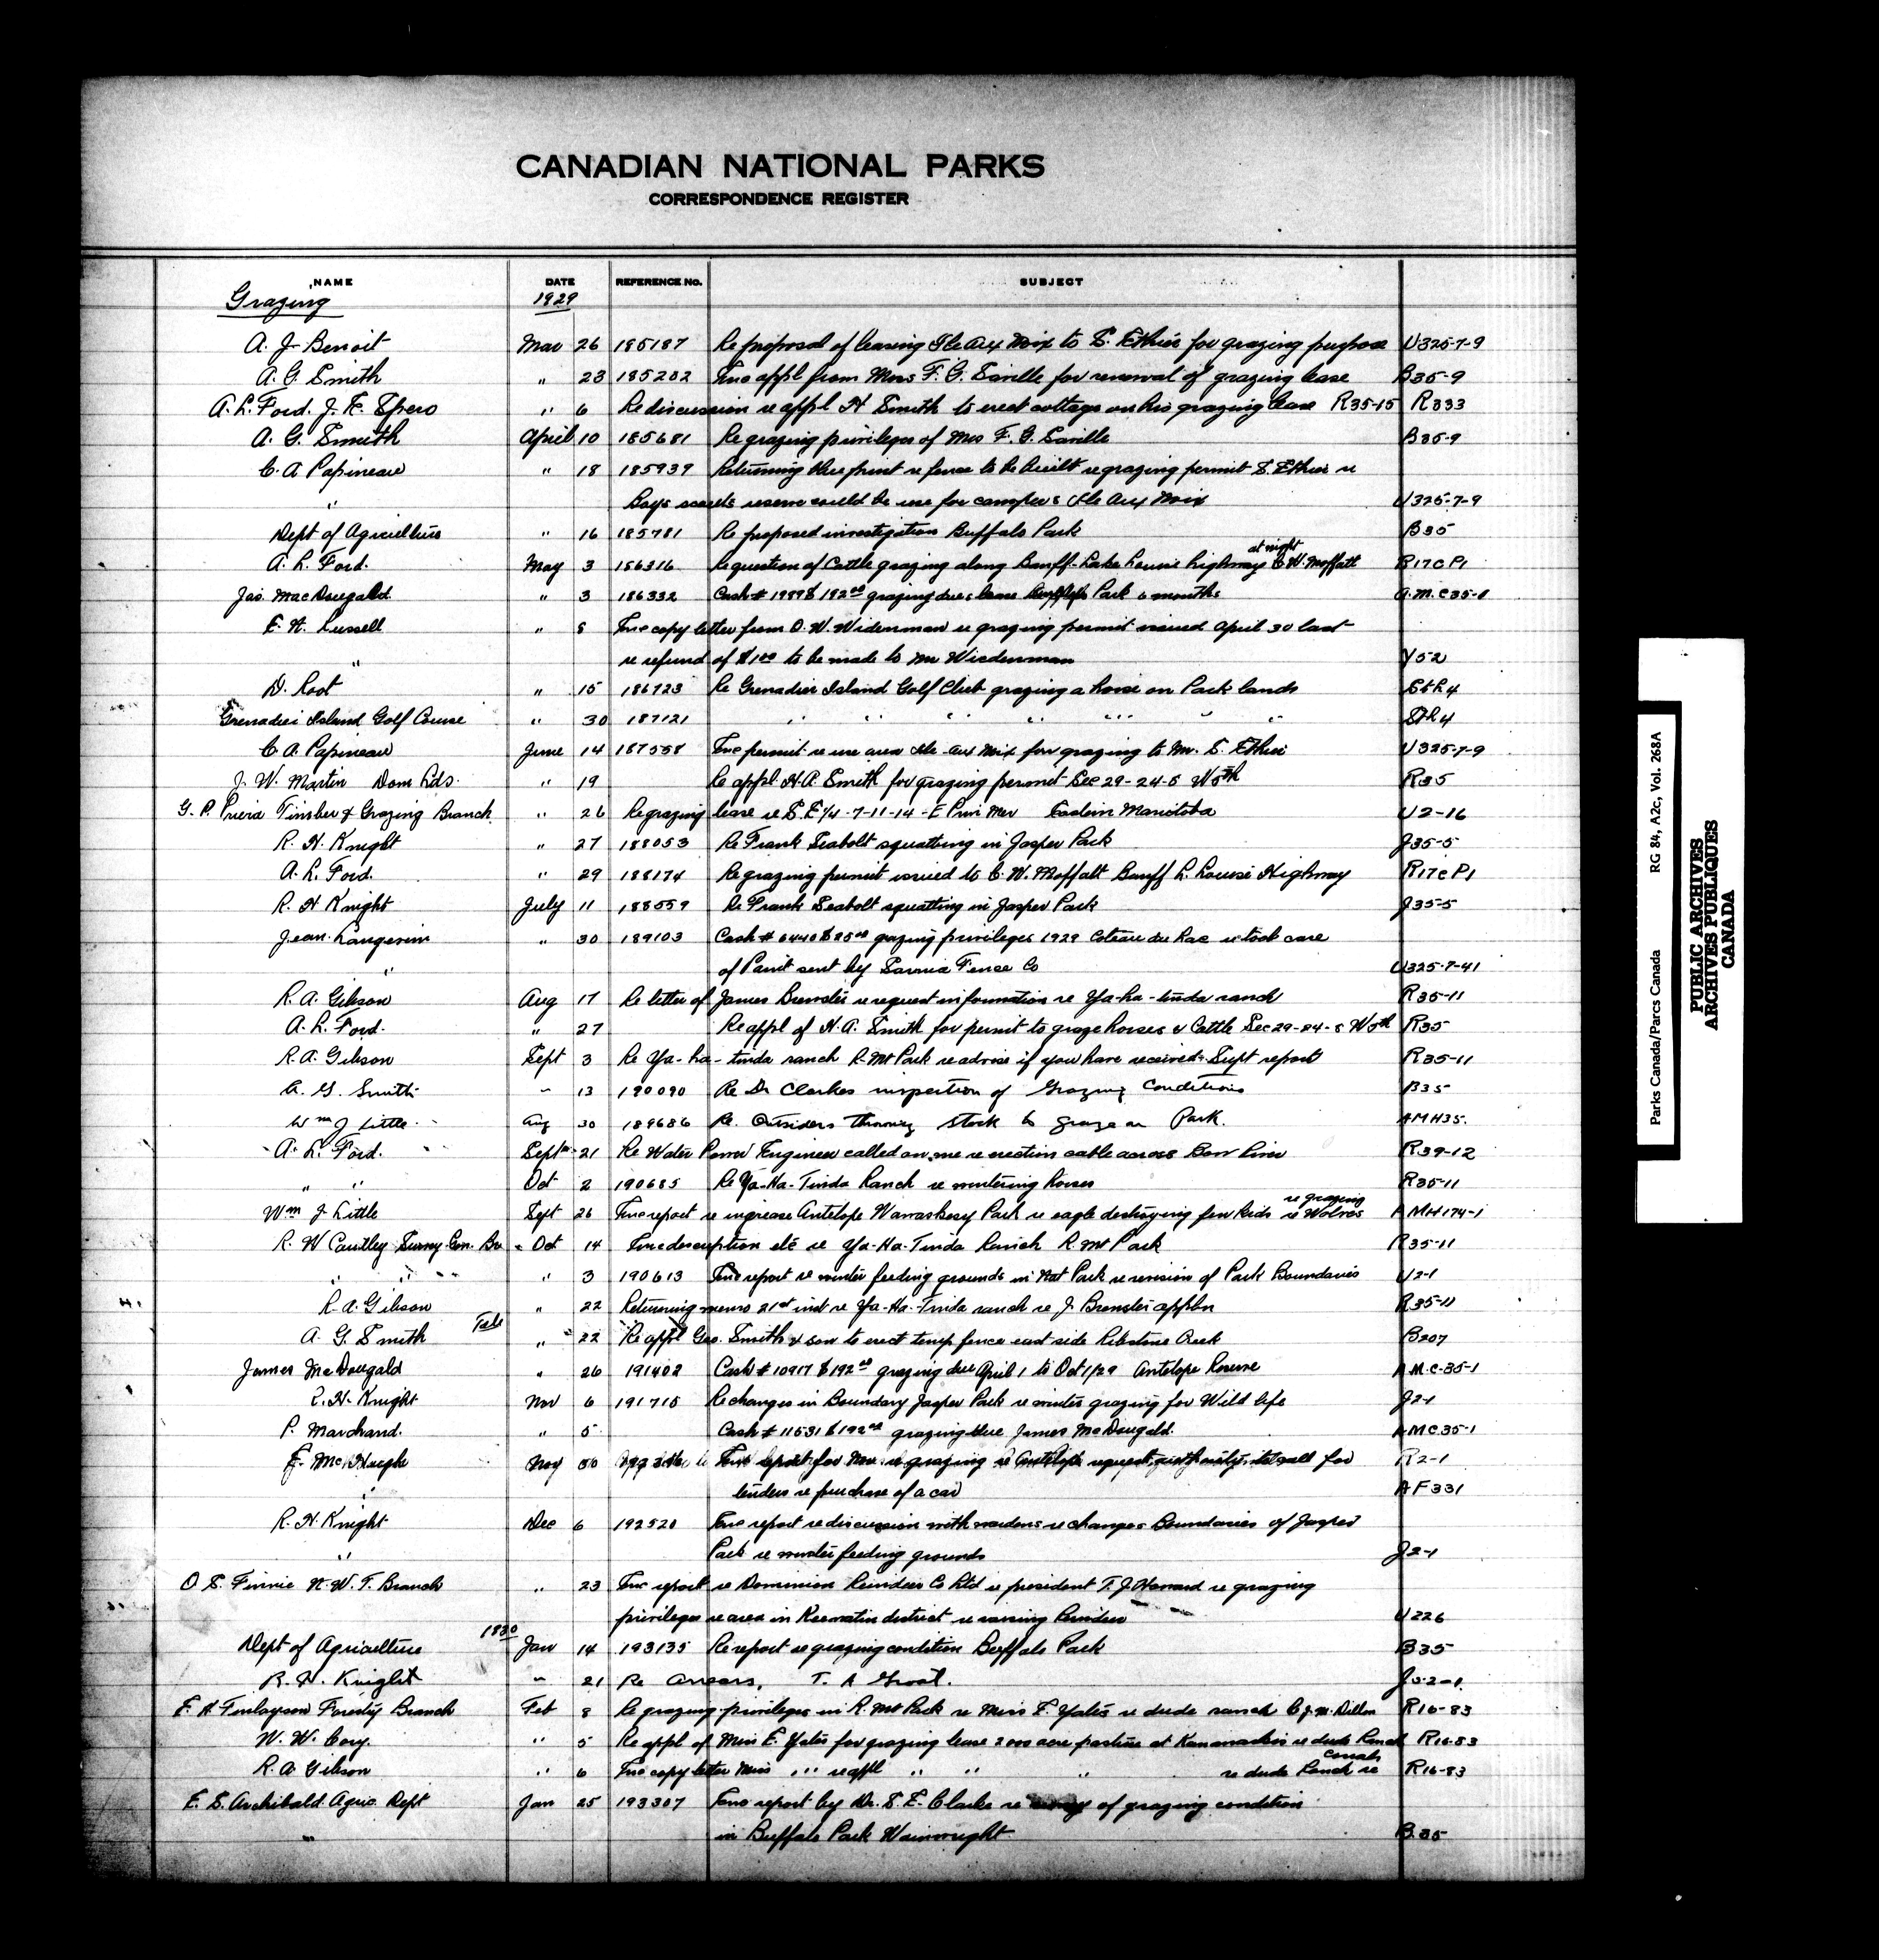 CANADIAN NATIONAL PARKS
CORRESPONDENCE REGISTER
NAME DATE REFERENCE No. SUBJECT
Grazing 1929
A. J. Benoit Mar 26 185187 Re proposal of leasing Ile Aux Noix to S. Ethier for grazing purpose U325-7-9
A. G. Smith " 23 185202 Enc appl from Mrs F. G. Saville for renewal of grazing lease B35-9
A. L. Ford. J. K. Spero " 6 Re discussion re appl H Smith to erect cottage on his grazing lease R35-15 R333
A. G. Smith April 10 185681 Re grazing privileges of Mrs F. G. Saville B35-9
C. A Papineau " 18 185939 Returning blue print re fence to be built re grazing permit S. Ethier re
" Boys scouts reserve could be use for campers Ile Aux Noix U325-7-9
Dept of Agriculture " 16 185781 Re proposed investigation Buffalo Park B35
A. L. Ford. May 3 186316 Re question of Cattle grazing along Banff-Lake Louise highway at night C. W. Moffatt R17cP1
Jas. MacDougald " 3 186332 Cash # 19898 192.00 grazing dues lease Park 6 months A.M.C35-1
E. H. Lussell " 8 Enc copy letter from O. W. Widenman re grazing permit issued April 30 last
" re refund of $1.00 to be made to Mr Wiedenman Y52
D. Root " 15 186723 Re Grenadier Island Golf Club grazing a horse on Park lands StL4
Grenadier Island Golf Course " 30 187121 " " " " " " " StL4
C. A. Papineau June 14 187558 Enc permit re use area Ile-Aux Noix for grazing to Mr. S. Ethier U325-7-9
J. W. Martin Dom Lds. " 19 Re appl. H. A. Smith for grazing permit Sec 29-24-8 W5th R35
G. P. Timber & Grazing Branch " 26 Re grazing lease re S.E 1/4-7-11-14-E Prin Mer Eastern Manitoba U2-16
R. H. Knight " 27 188053 Re Frank Seabolt squatting in Jasper Park J35-5
A. L. Ford. " 29 188174 Re grazing permit issued to C. W. Moffatt Banff L. Louise Highway R17cP1
R. H Knight July 11 188559 Re Frank Seabolt squatting in Jasper Park J35-5
Jean Langevin " 30 189103 Cash # 6440 $85.00 grazing privileges 1929 Coteau du Lac re took care
" of Panit sent by Sarnia Fence Co U325-7-41
R. A. Gibson Aug 17 Re letter of James Brewster re request information re Ya-ha-tinda ranch R35-11
A. L. Ford. " 27 Re appl of H. A. Smith for permit to graze horses & Cattle Sec 29-24-8 W5th R35
R. A. Gibson Sept 3 Re Ya-ha-tinda ranch R. Mt Park re advise if you have received Supt report R35-11
A. G. Smith " 13 190090 Re Dr Clarkes inspection of Grazing Conditions B35
Wm J Little Aug 30 189686 Re. Outsiders throwing stock to graze on Park. AMH35.
A. L. Ford. Sept 21 Re Water Power Engineer called on me re erection cable across Bow River R39-12
" " Oct 2 190685 Re Ya-Ha-Tinda Ranch re wintering horses R35-11
Wm J Little Sept 26 Enc report re increase Antelope Wawaskesy Park re eagle destroying few kids re grazing re Wolves AMH174-1
R. W Cautley Survey Gen. Br Oct 14 Enc description etc re Ya-Ha-Tinda Ranch R. Mt Park R35-11
" " " 3 190613 Enc report re winter feeding grounds in Nat Park re revision of Park Boundaries U2-1
R. A. Gibson " 22 Returning memo 21st inst re Ya-Ha-Tinda ranch re J. Brewster appln R35-11
A. G. Smith " 22 Re appl Geo. Smith & son to erect temp fence east side Ribstone Creek B207
James McDougald " 26 191402 Cash # 10917 $192.00 grazing due April 1 to Oct 1/29 Antelope Reserve A.M.C-35-1
R. H. Knight Nov 6 191715 Re changes in Boundary Jasper Park re winter grazing for Wild life J2-1
P. Marchand. " 5 Cash # 11531 $192.00 grazing due James McDougald. AMC35-1
E. McHugh Nov 30 Enc report for Nov. re grazing re Antelope request authority to call for R2-1
" tenders re purchase of a car AF331
R. H. Knight Dec 6 192520 Enc report re discussion with wardens re changes Boundaries of Jasper
" Park re winter feeding grounds J2-1
O. S. Finnie N. W. T. Branch " 23 Enc report re Dominion Reindeer Co Ltd re president T. J. Howard re grazing
privileges re area in Keewatin district re raising Reindeer U226
1930
Dept of Agriculture Jan 14 193135 Re report re grazing condition Buffalo Park B35
R. H. Knight " 21 Re Arrears, T. A Groat. J5-2-1
E. H. Finlayson Forestry Branch Feb 8 Re grazing privileges in R. Mt Park re Miss E. Yates re dude ranch C J. M. Dillon R16-83
W. W. Cory. " 5 Re appl of Miss E. Yates for grazing lease 2000 acre pasture at Kananaskis re dude Ranch R16-83
R. A Gibson " 6 Enc copy letter Miss " re appl " " " re dude Ranch re corrals R16-83
E. S. Archibald. Agric Dept Jan 25 193307 Enc report by Dr. S. E. Clarke re of grazing condition
" in Buffalo Park Wainwright B35
Parks Canada/Parcs Canada RG 84, A2c, Vol. 268A
PUBLIC ARCHIVES
ARCHIVES PUBLIQUES
CANADA